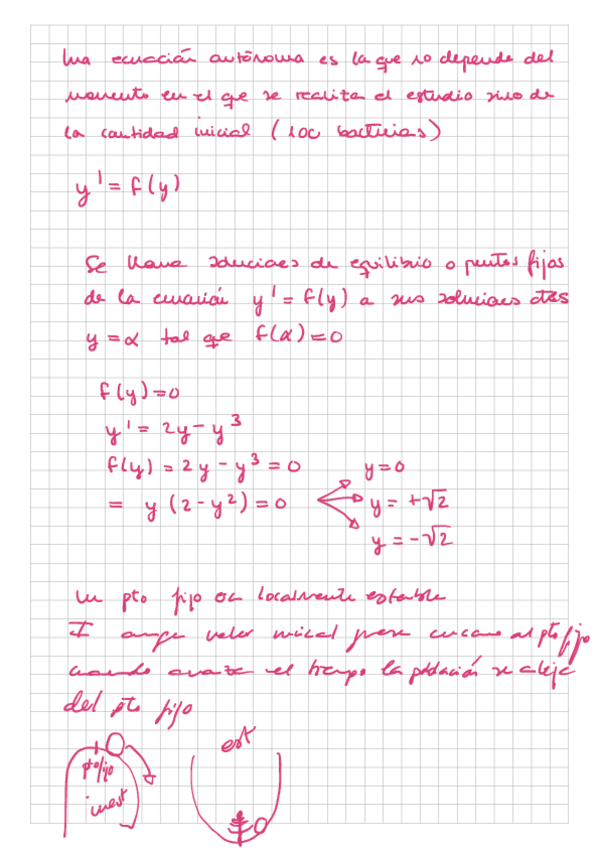 Una ecuación autónoma es la que no depende del
momento en el que se realiza el estudio sino de
la cantidad inicial (100 bacterias)
y' = f(y)
Se llama soluciones de equilibrio o puntos fijos
de la ecuación y' = f(y) a sus soluciones ctes
y = α tal que f(α) = 0
f(y) = 0
y' = 2y - y³
f(y) = 2y - y³ = 0
= y (2 - y²) = 0
y = 0
y = +√2
y = -√2
Un pto fijo es localmente estable
I aunque valor inicial pase cercano al pto fijo
cuando avanza el tiempo la población se aleja
del pto fijo
pto fijo
inest
est